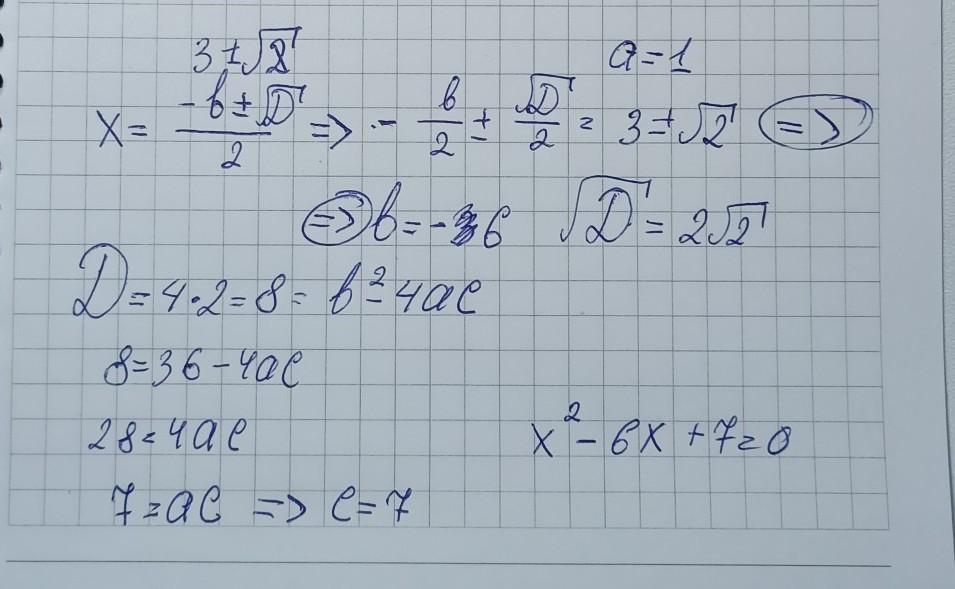 3±√2
a=1
x= (-b±√D)/2 => - b/2 ± √D/2 = 3±√2 =>
=> b=-6 √D = 2√2
D=4·2=8= b²-4ac
8=36-4ac
28=4ac
x²-6x+7=0
7=ac => c=7